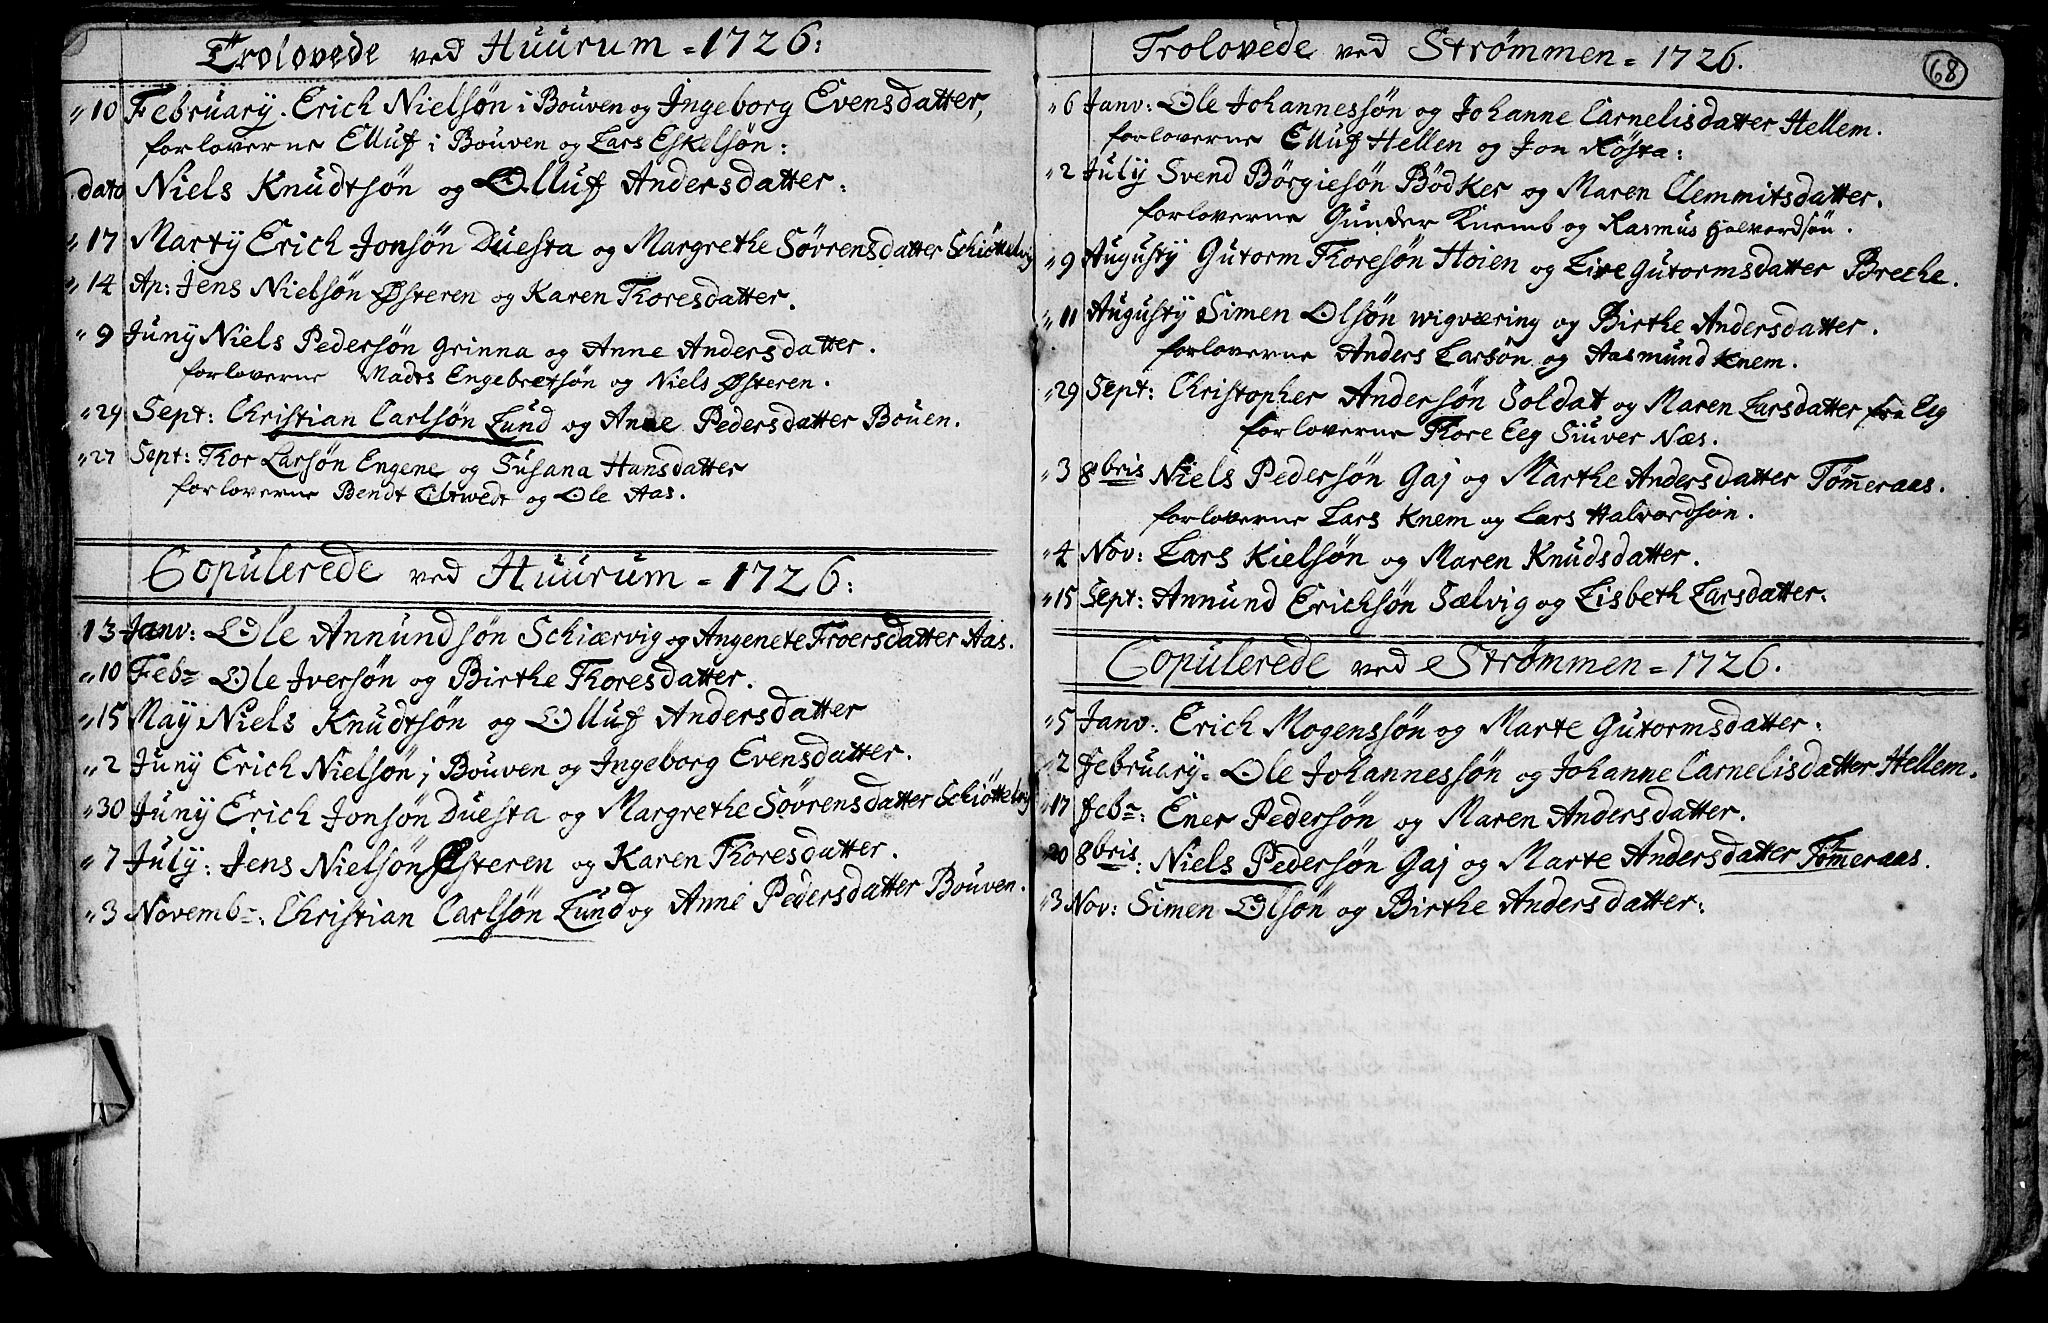 Trolovede ved Huurum = 1726:
" 10 February. Erich Nielsøn i Bouven og Ingeborg Evensdatter,
forloverne Elluf i Bouven og Lars Eskelsøn:
dato Niels Knudtsøn og Olluf Andersdatter:
" 17 Marty Erich Jonsøn Duesta og Margrethe Søvrensdatter Schiøttelvig
" 14 Ap: Jens Nielsøn Østeren og Karen Thoresdatter.
" 9 Juny Niels Pedersøn Grinna og Anne Andersdatter.
forloverne Madts Engebretsøn og Niels Østeren.
" 29 Sept: Christian Carlsøn Lund og Anne Pedersdatter Bouen.
" 27 Sept: Thor Larsøn Engene og Susana Hansdatter
forloverne Bendt og Ole Aas.
Copulerede ved Huurum = 1726:
13 Janv: Ole Annundsøn Schiærvig og Angenete Froersdatter Aas.
" 10 Febr Ole Iversøn og Birthe Thoresdatter.
" 15 May Niels Knudtsøn og Olluf Andersdatter
" 2 Juny Erich Nielsøn i Bouven og Ingeborg Evensdatter.
" 30 Juny Erich Jonsøn Duesta og Margrethe Søvrensdatter Schiøttelvig
" 7 July: Jens Nielsøn Østeren og Karen Thoresdatter.
" 3 Novembr: Christian Carlsøn Lund og Anne Pedersdatter Bouven.
68
Trolovede ved Strømmen = 1726.
" 6 Janv: Ole Johannessøn og Johanne Carnelisdatter Hellem.
forloverne Elluf Hellen og Jon Røsta:
" 2 July Svend Börgiesøn Bödker og Maren Clemmitsdatter.
forloverne Gunder Knemb og Rasmus Halvordsøn.
" 9 Augusty Gutorm Thoresøn Höien og Live Gutormsdatter Breche.
" 11 Augusty Simen Olsøn wigværing og Birthe Andersdatter.
forloverne Anders Larsøn og Aasmund Knem.
" 29 Sept: Christopher Andersøn Soldat og Maren Larsdatter fra Eeg
forloverne Thore Eeg Siuver Næs.
" 3 8bris Niels Pedersøn Gaj og Marthe Andersdatter Tømmeraas.
forloverne Lars Knem og Lars Halvordsøn.
" 4 Nov: Lars Kielsøn og Maren Knudsdatter.
" 15 Sept: Annund Erichsøn Sælvig og Lisbeth Larsdatter.
Copulerede ved Strømmen = 1726.
" 5 Janv: Erich Mogenssøn og Marte Gutormsdatter.
" 2 February. Ole Johannessøn og Johanne Carnelisdatter Hellem.
" 17 Febr: Ener Pedersøn og Maren Andersdatter.
20 8bris: Niels Pedersøn Gaj og Marte Andersdatter Tømmeraas.
" 3 Nov: Simen Olsøn og Birthe Andersdatter: